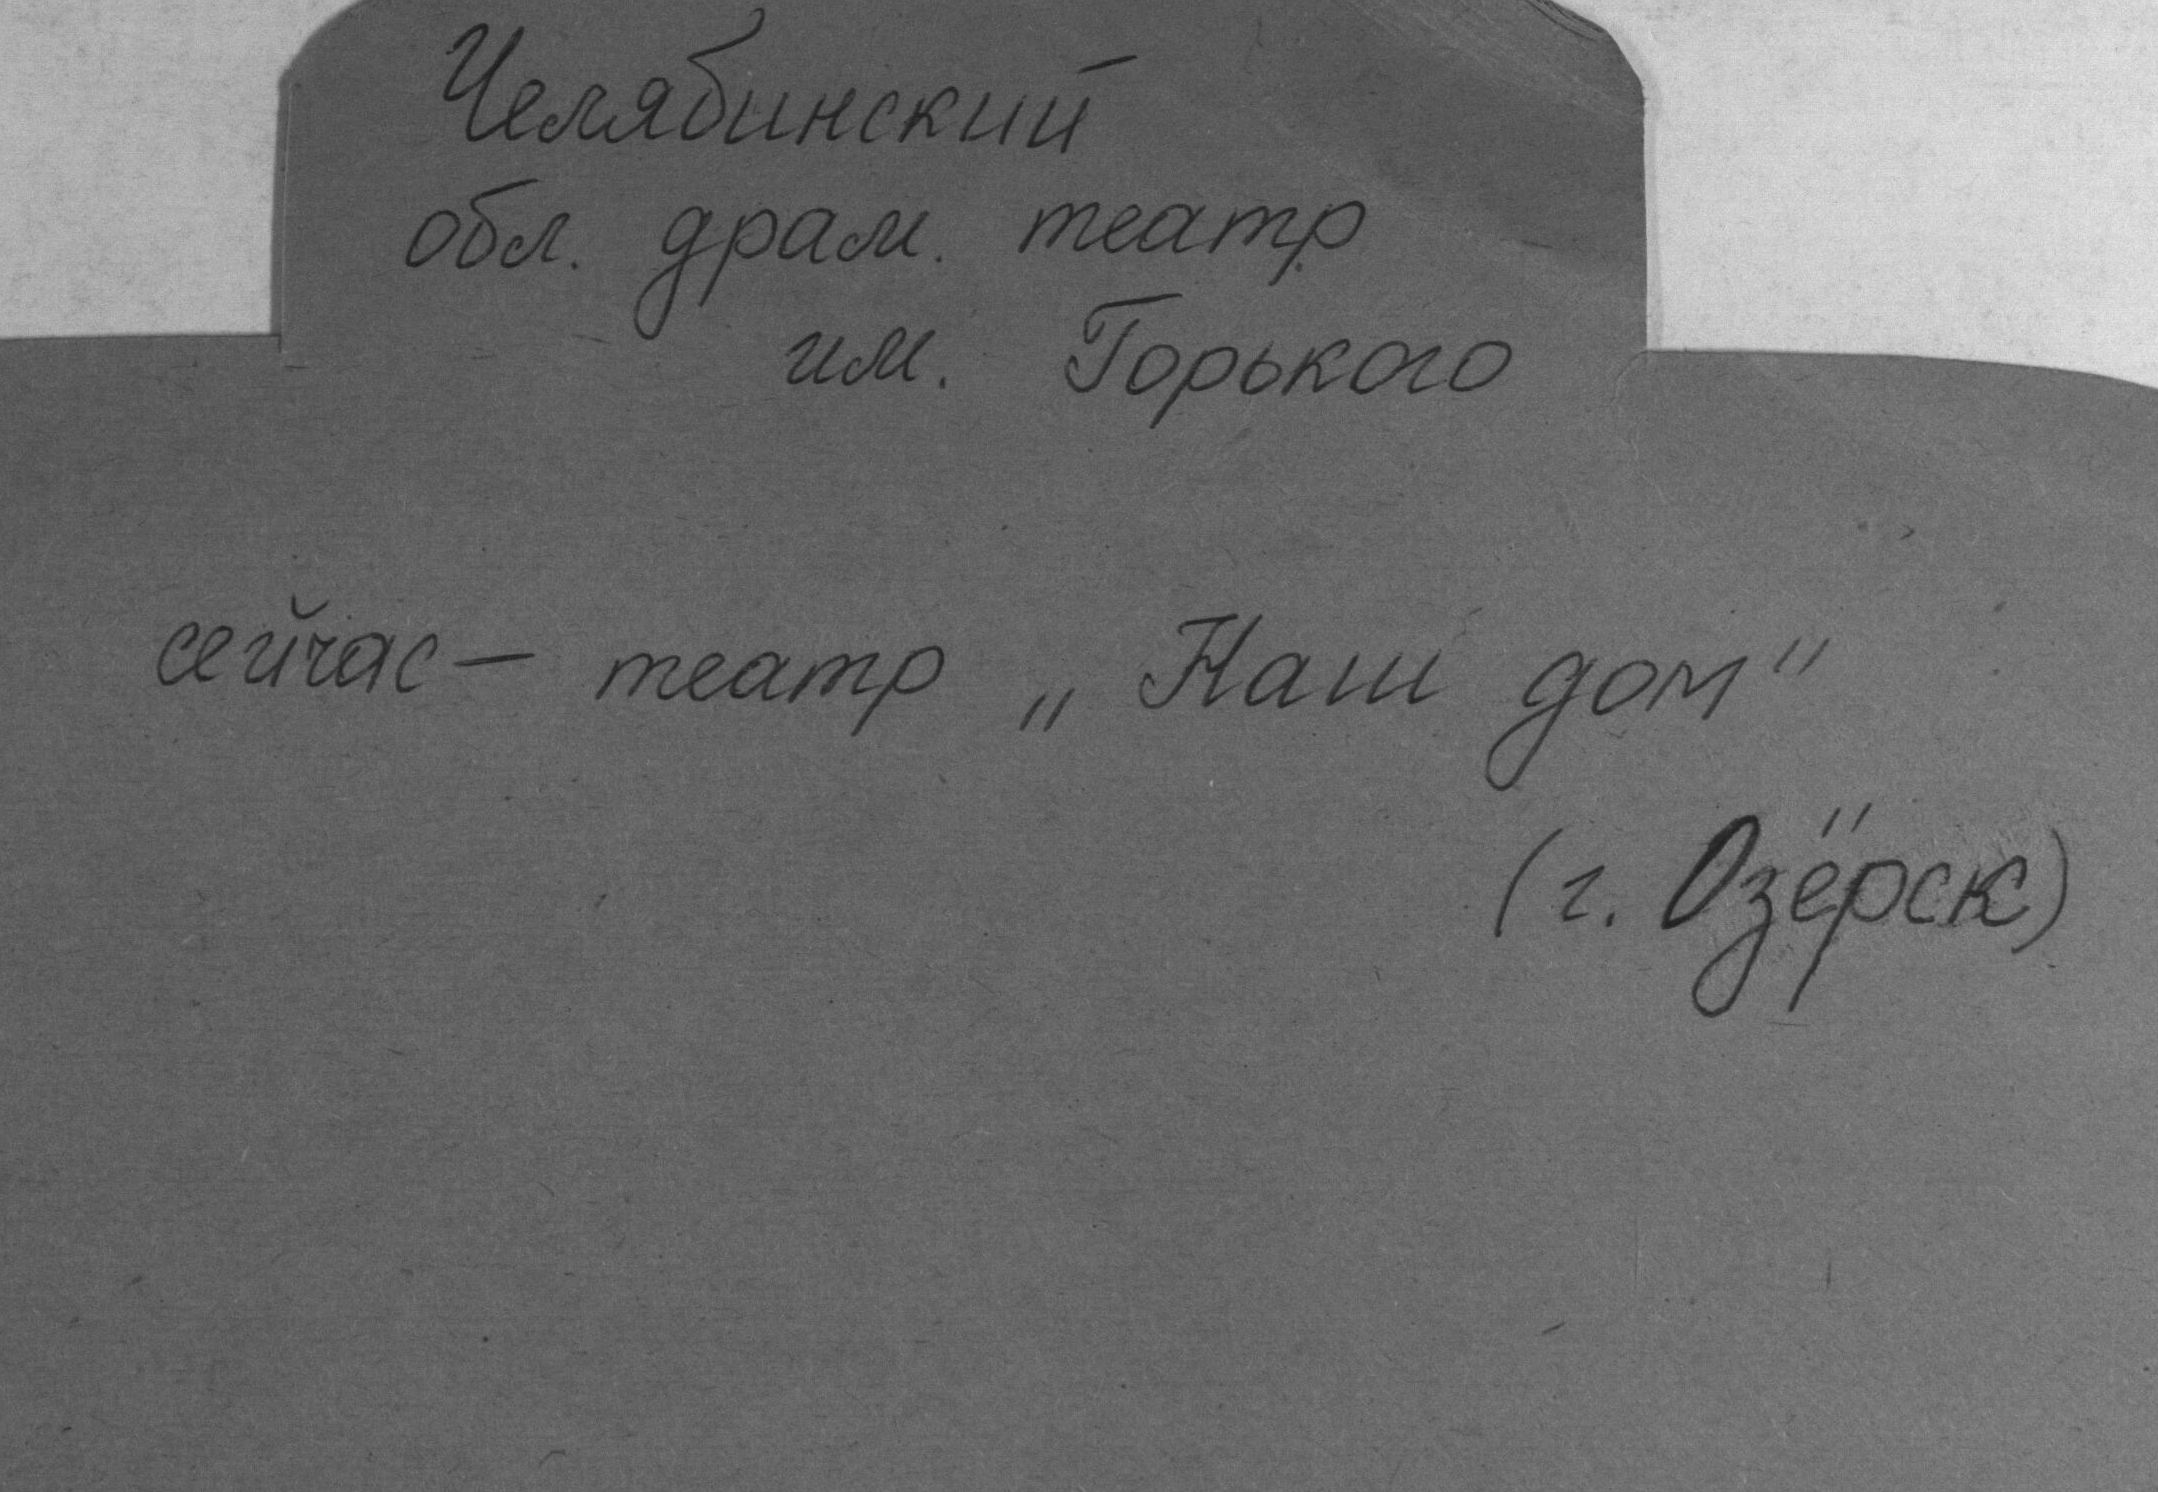 Челябинский
обл. драм. театр
им. Горького
сейчас — театр „Наш дом"
(г. Озёрск)